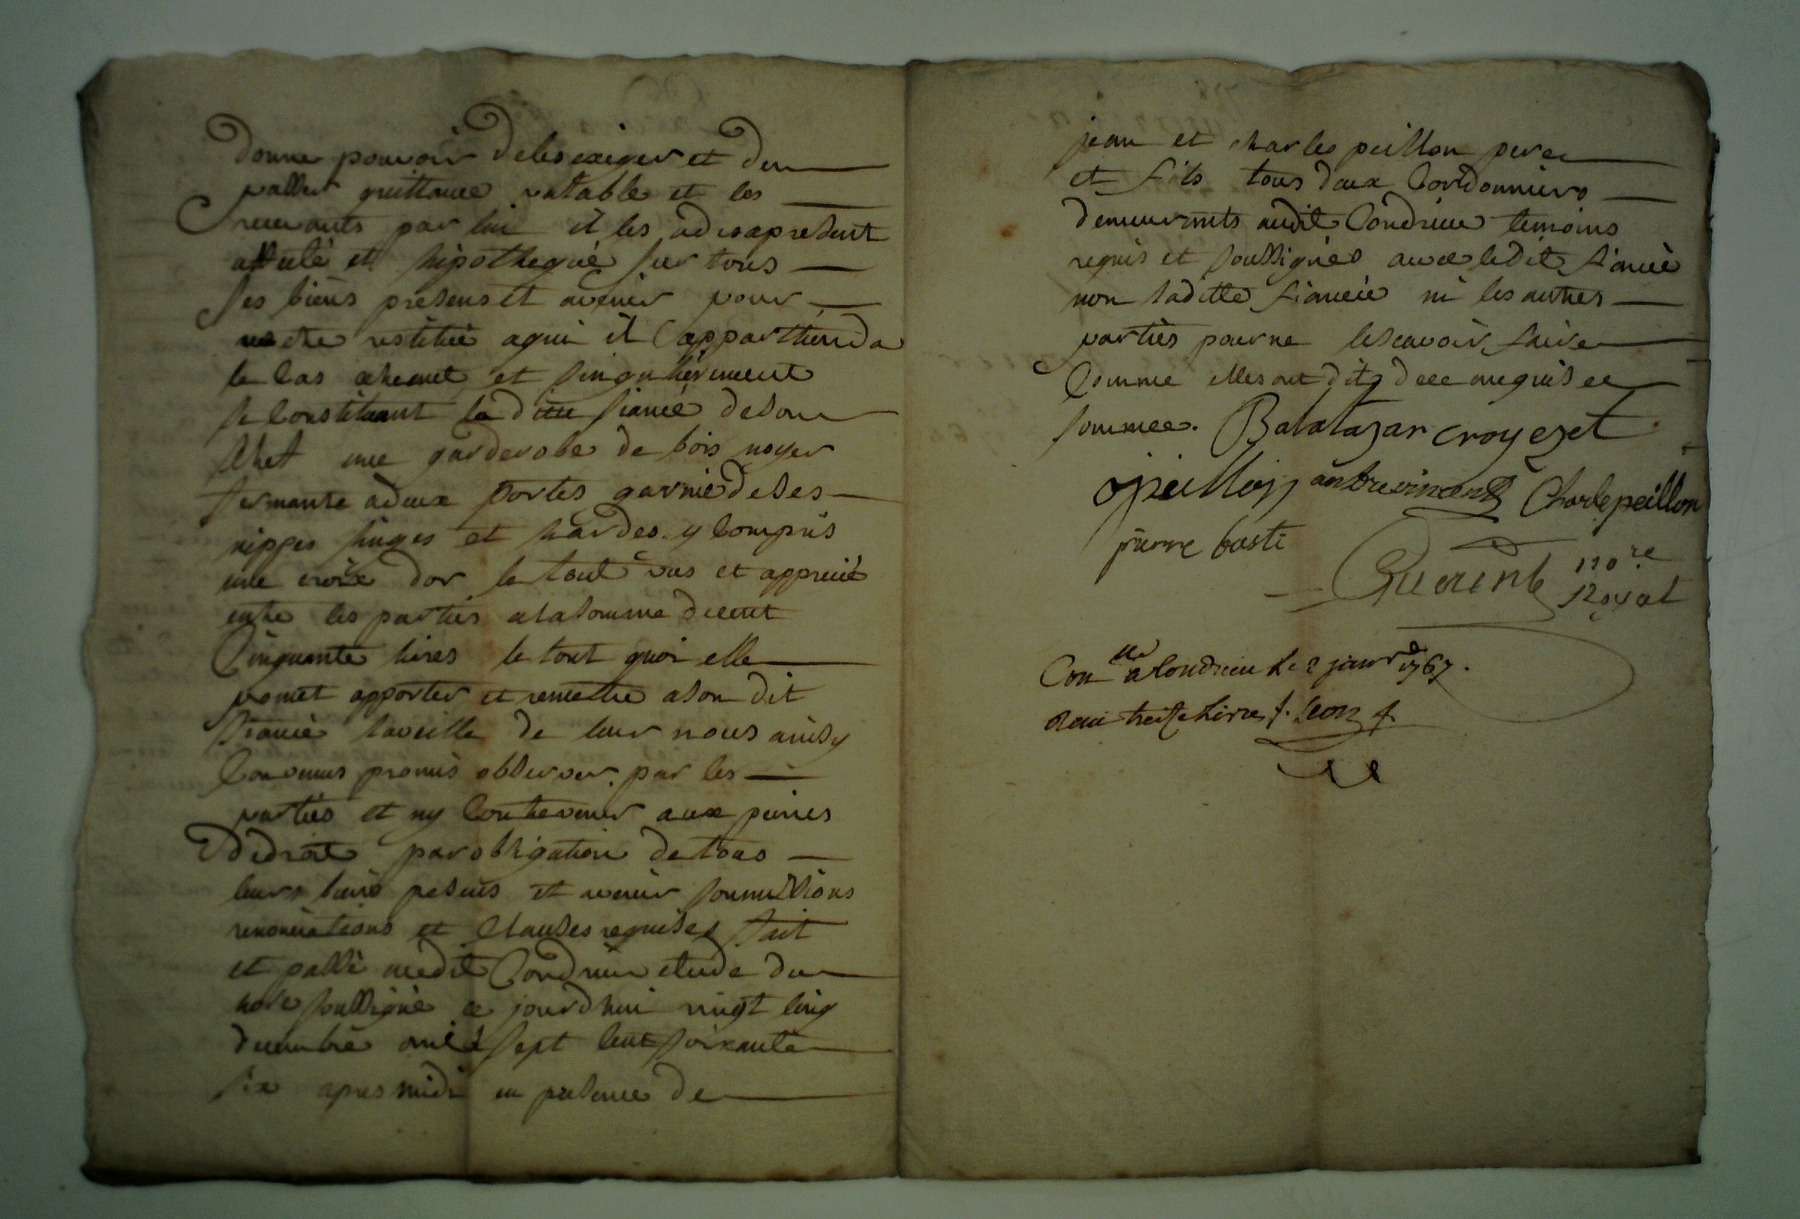 donne pouvoir de les exiger et den
passer quittance vatable et les
recevants par lui il les a des a present
assuré et hipothequé sur tous
ses biens presens et avenir pour
estre restitué a qui il appartiendra
le cas avenant et singulierement
se constituant la ditte fiancée de son
chef une garderobe de bois noyer
fermante a deux portes garnie de ses
nippes linges et hardes y compris
une croix dor le tout vus et apprecié
entre les parties a la somme de cent
Cinquante livres le tout quoi elle
promet apporter et remettre a son dit
fiancé la veille de leur noces ainsy
Convenus promis observer par les
parties et ny Contrevenir aux peines
de droit par obligation de tous
leurs biens presens et avenir soumissions
renonciations et Clauses requises fait
et passé audit Condrieu etude du
nore soussigné ce jourdhui vingt cinq
decembre mil sept cent soixante
six apres midi en presence de
jean et charles peillon pere
et fils tous deux Cordonniers
demeurants audit Condrieu temoins
requis et soussignés avec ledit fiancé
non laditte fiancée ni les autres
parties pour ne le scavoir faire
Comme elles ont dit de ce enquis et
sommée. Balatazar croyezet
jpeillon Charle peillon
pierre basti
Guerin nore
Royal
Con a Condrieu le 2 janvr 1767.
Reçu treize Livres f. Leon f.